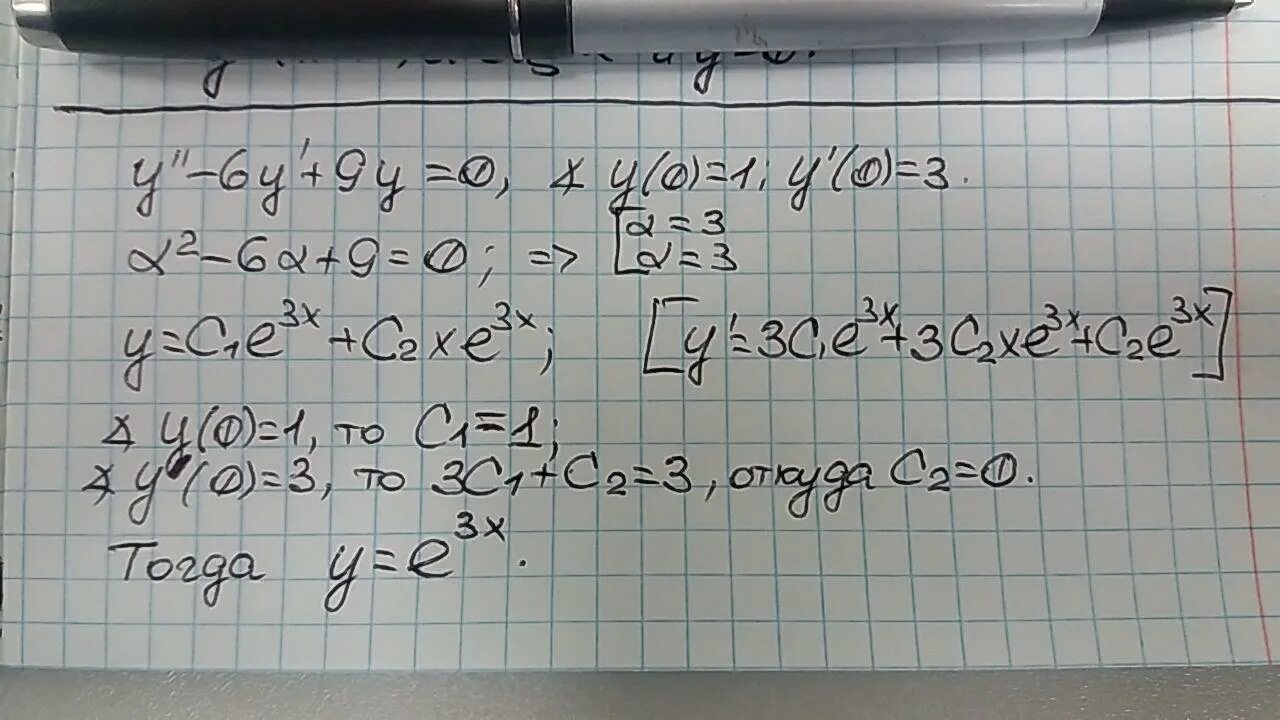 y''-6y'+9y=0, ∡ y(0)=1; y'(0)=3.
α²-6α+9=0; => [α=3 α=3
y=C₁e³ˣ+C₂xe³ˣ; [y'=3C₁e³ˣ+3C₂xe³ˣ+C₂e³ˣ]
∡ y(0)=1, то C₁=1;
∡ y'(0)=3, то 3C₁+C₂=3, откуда C₂=0.
Тогда y=e³ˣ.